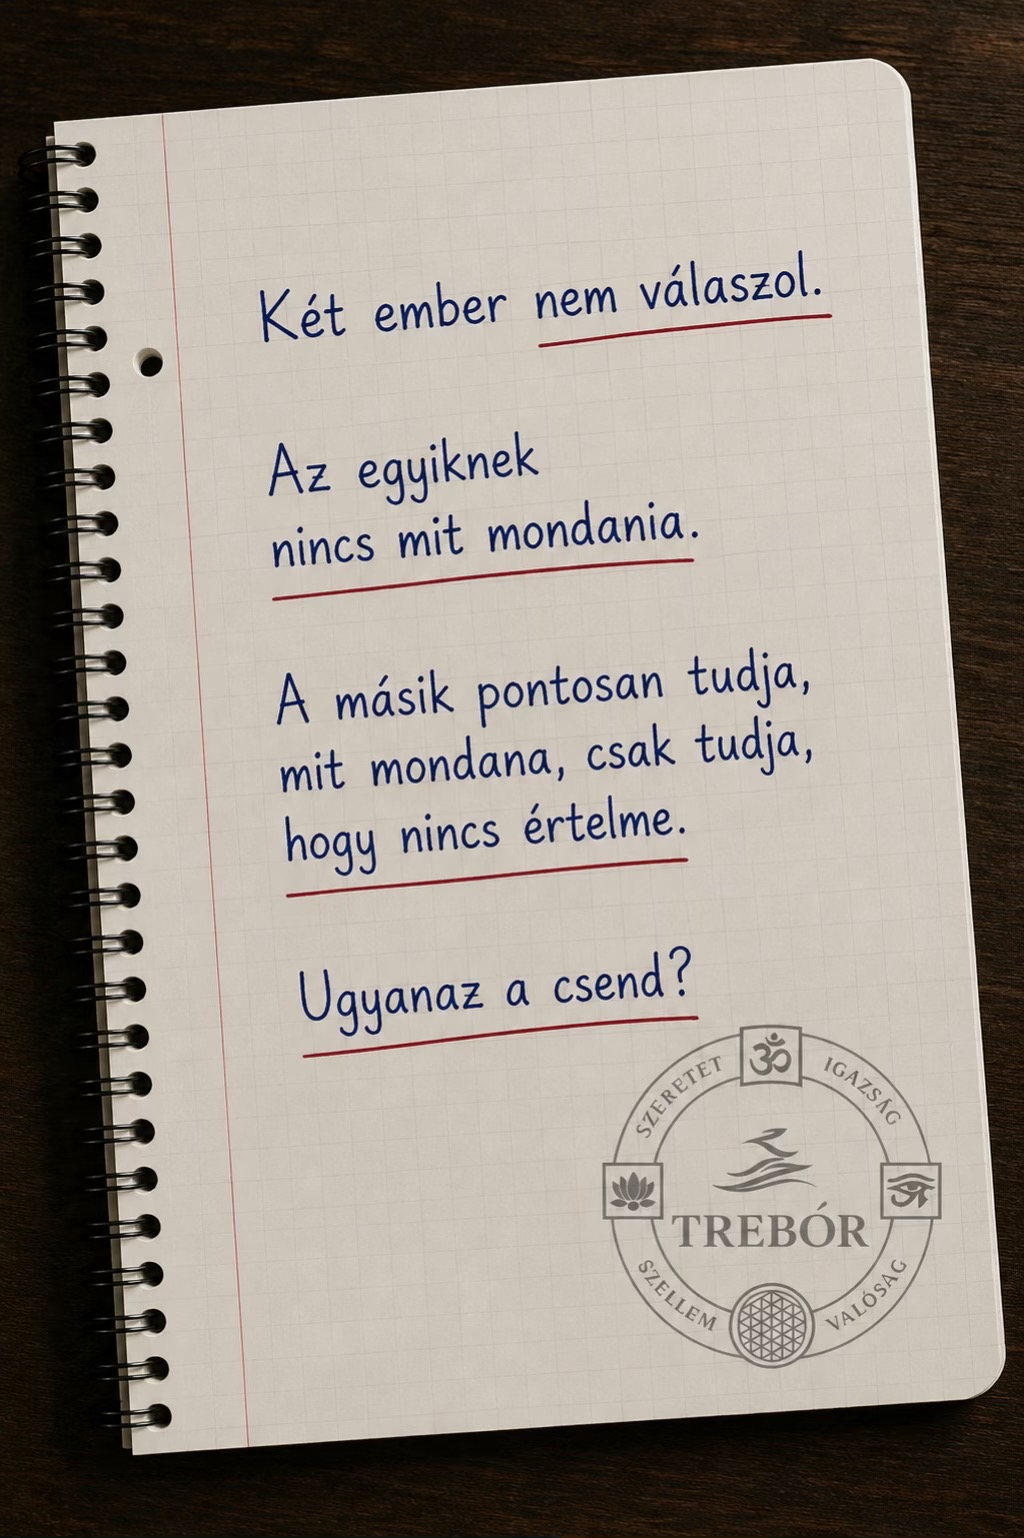 Két ember nem válaszol.
Az egyiknek
nincs mit mondania.
A másik pontosan tudja,
mit mondana, csak tudja,
hogy nincs értelme.
Ugyanaz a csend?
SZERETET
IGAZSÁG
TREBÓR
SZELLEM
VALÓSÁG